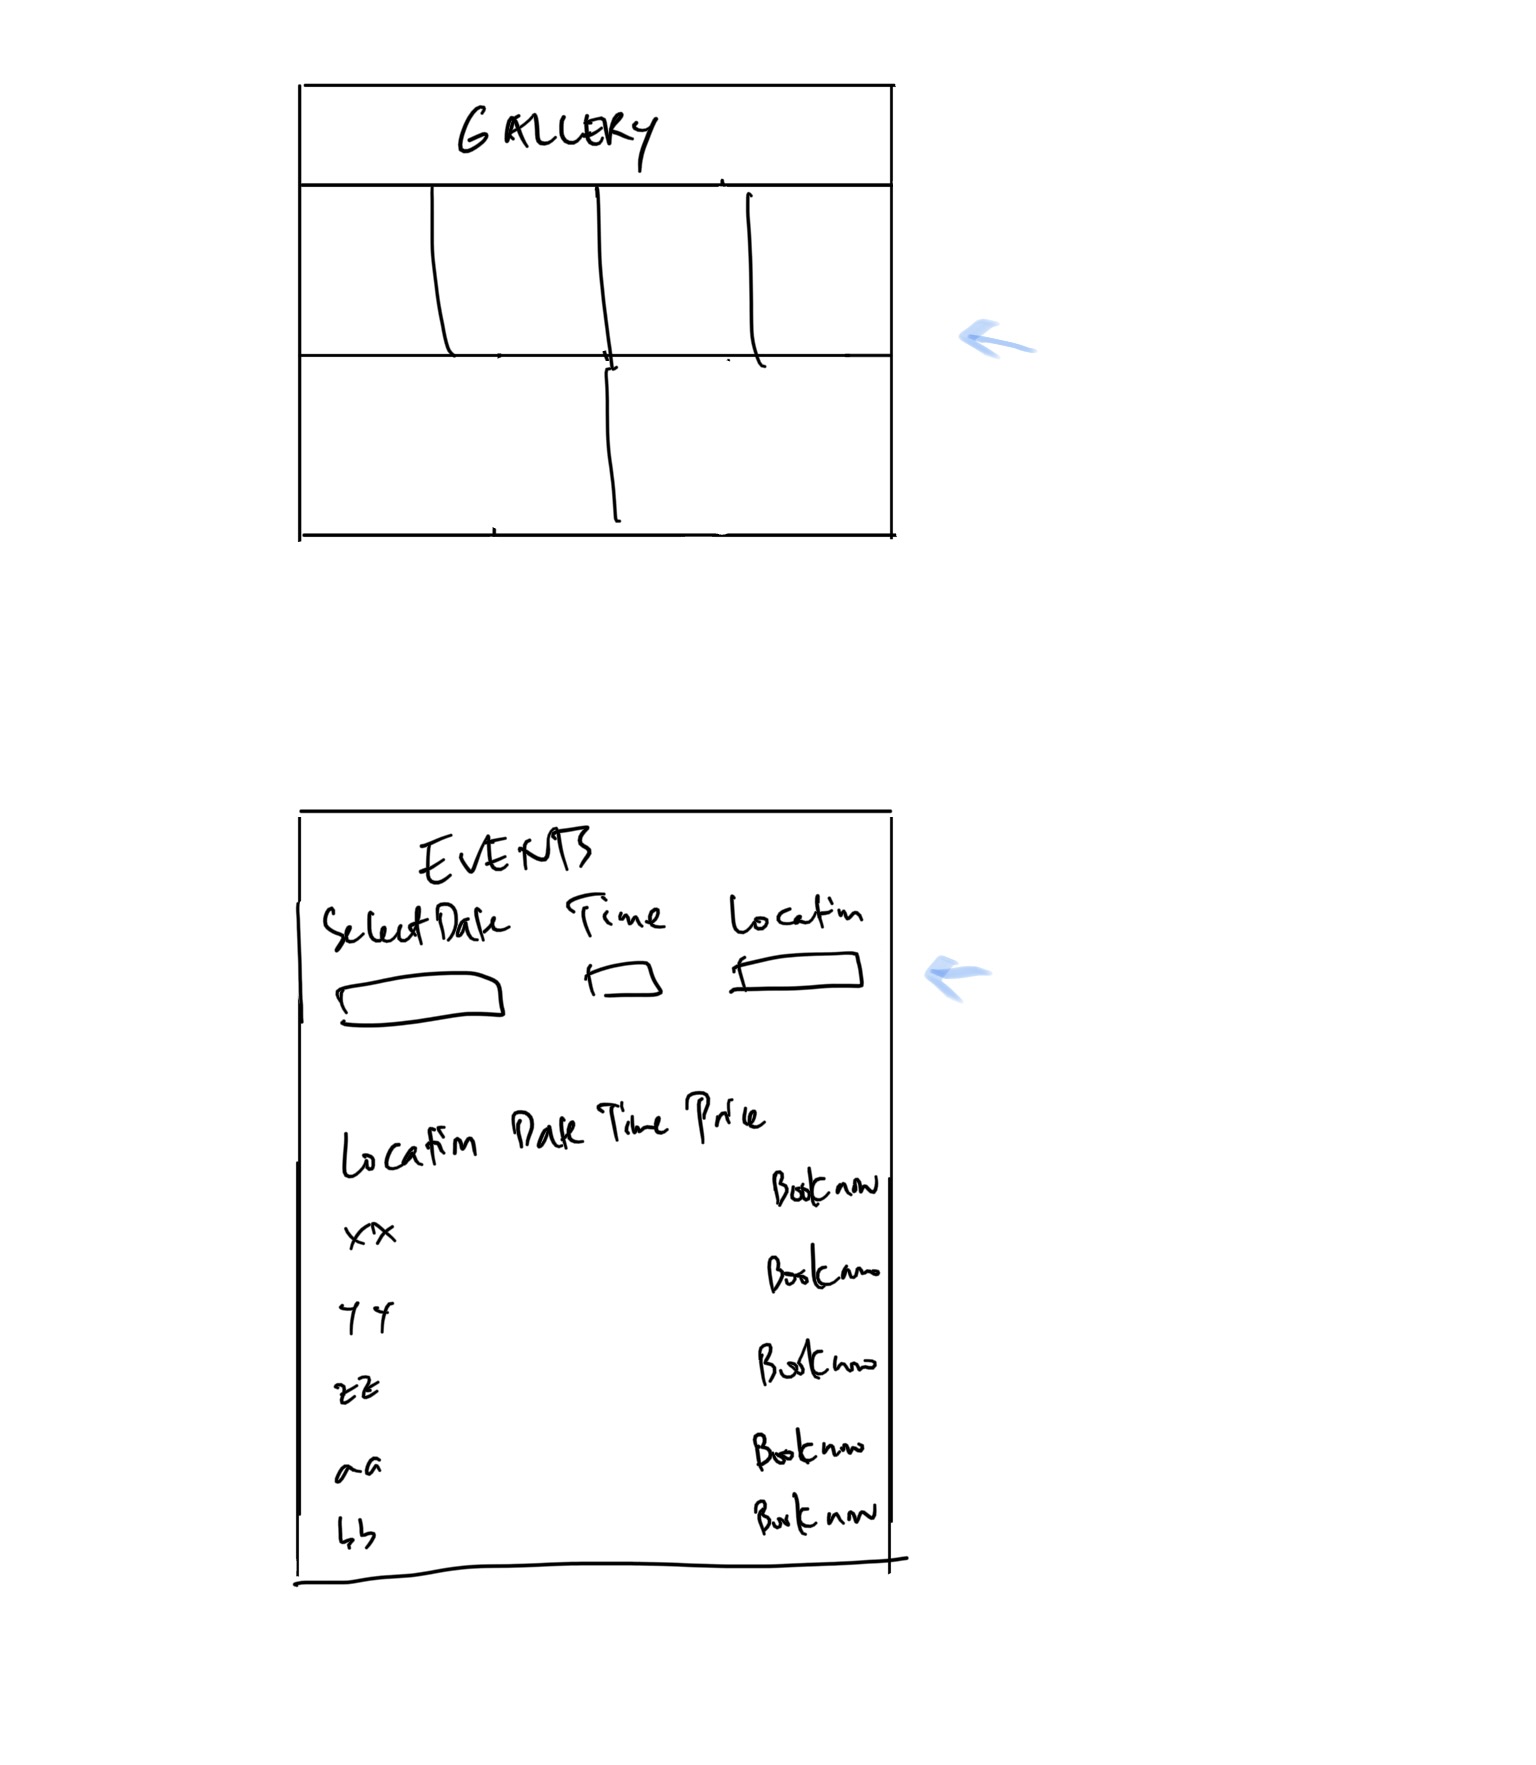 GALLERY
EVENTS
Select Date Time Location
Location Date Time Price
Book now
xx
Book now
YY
Book now
zz
Book now
aa
Book now
bb